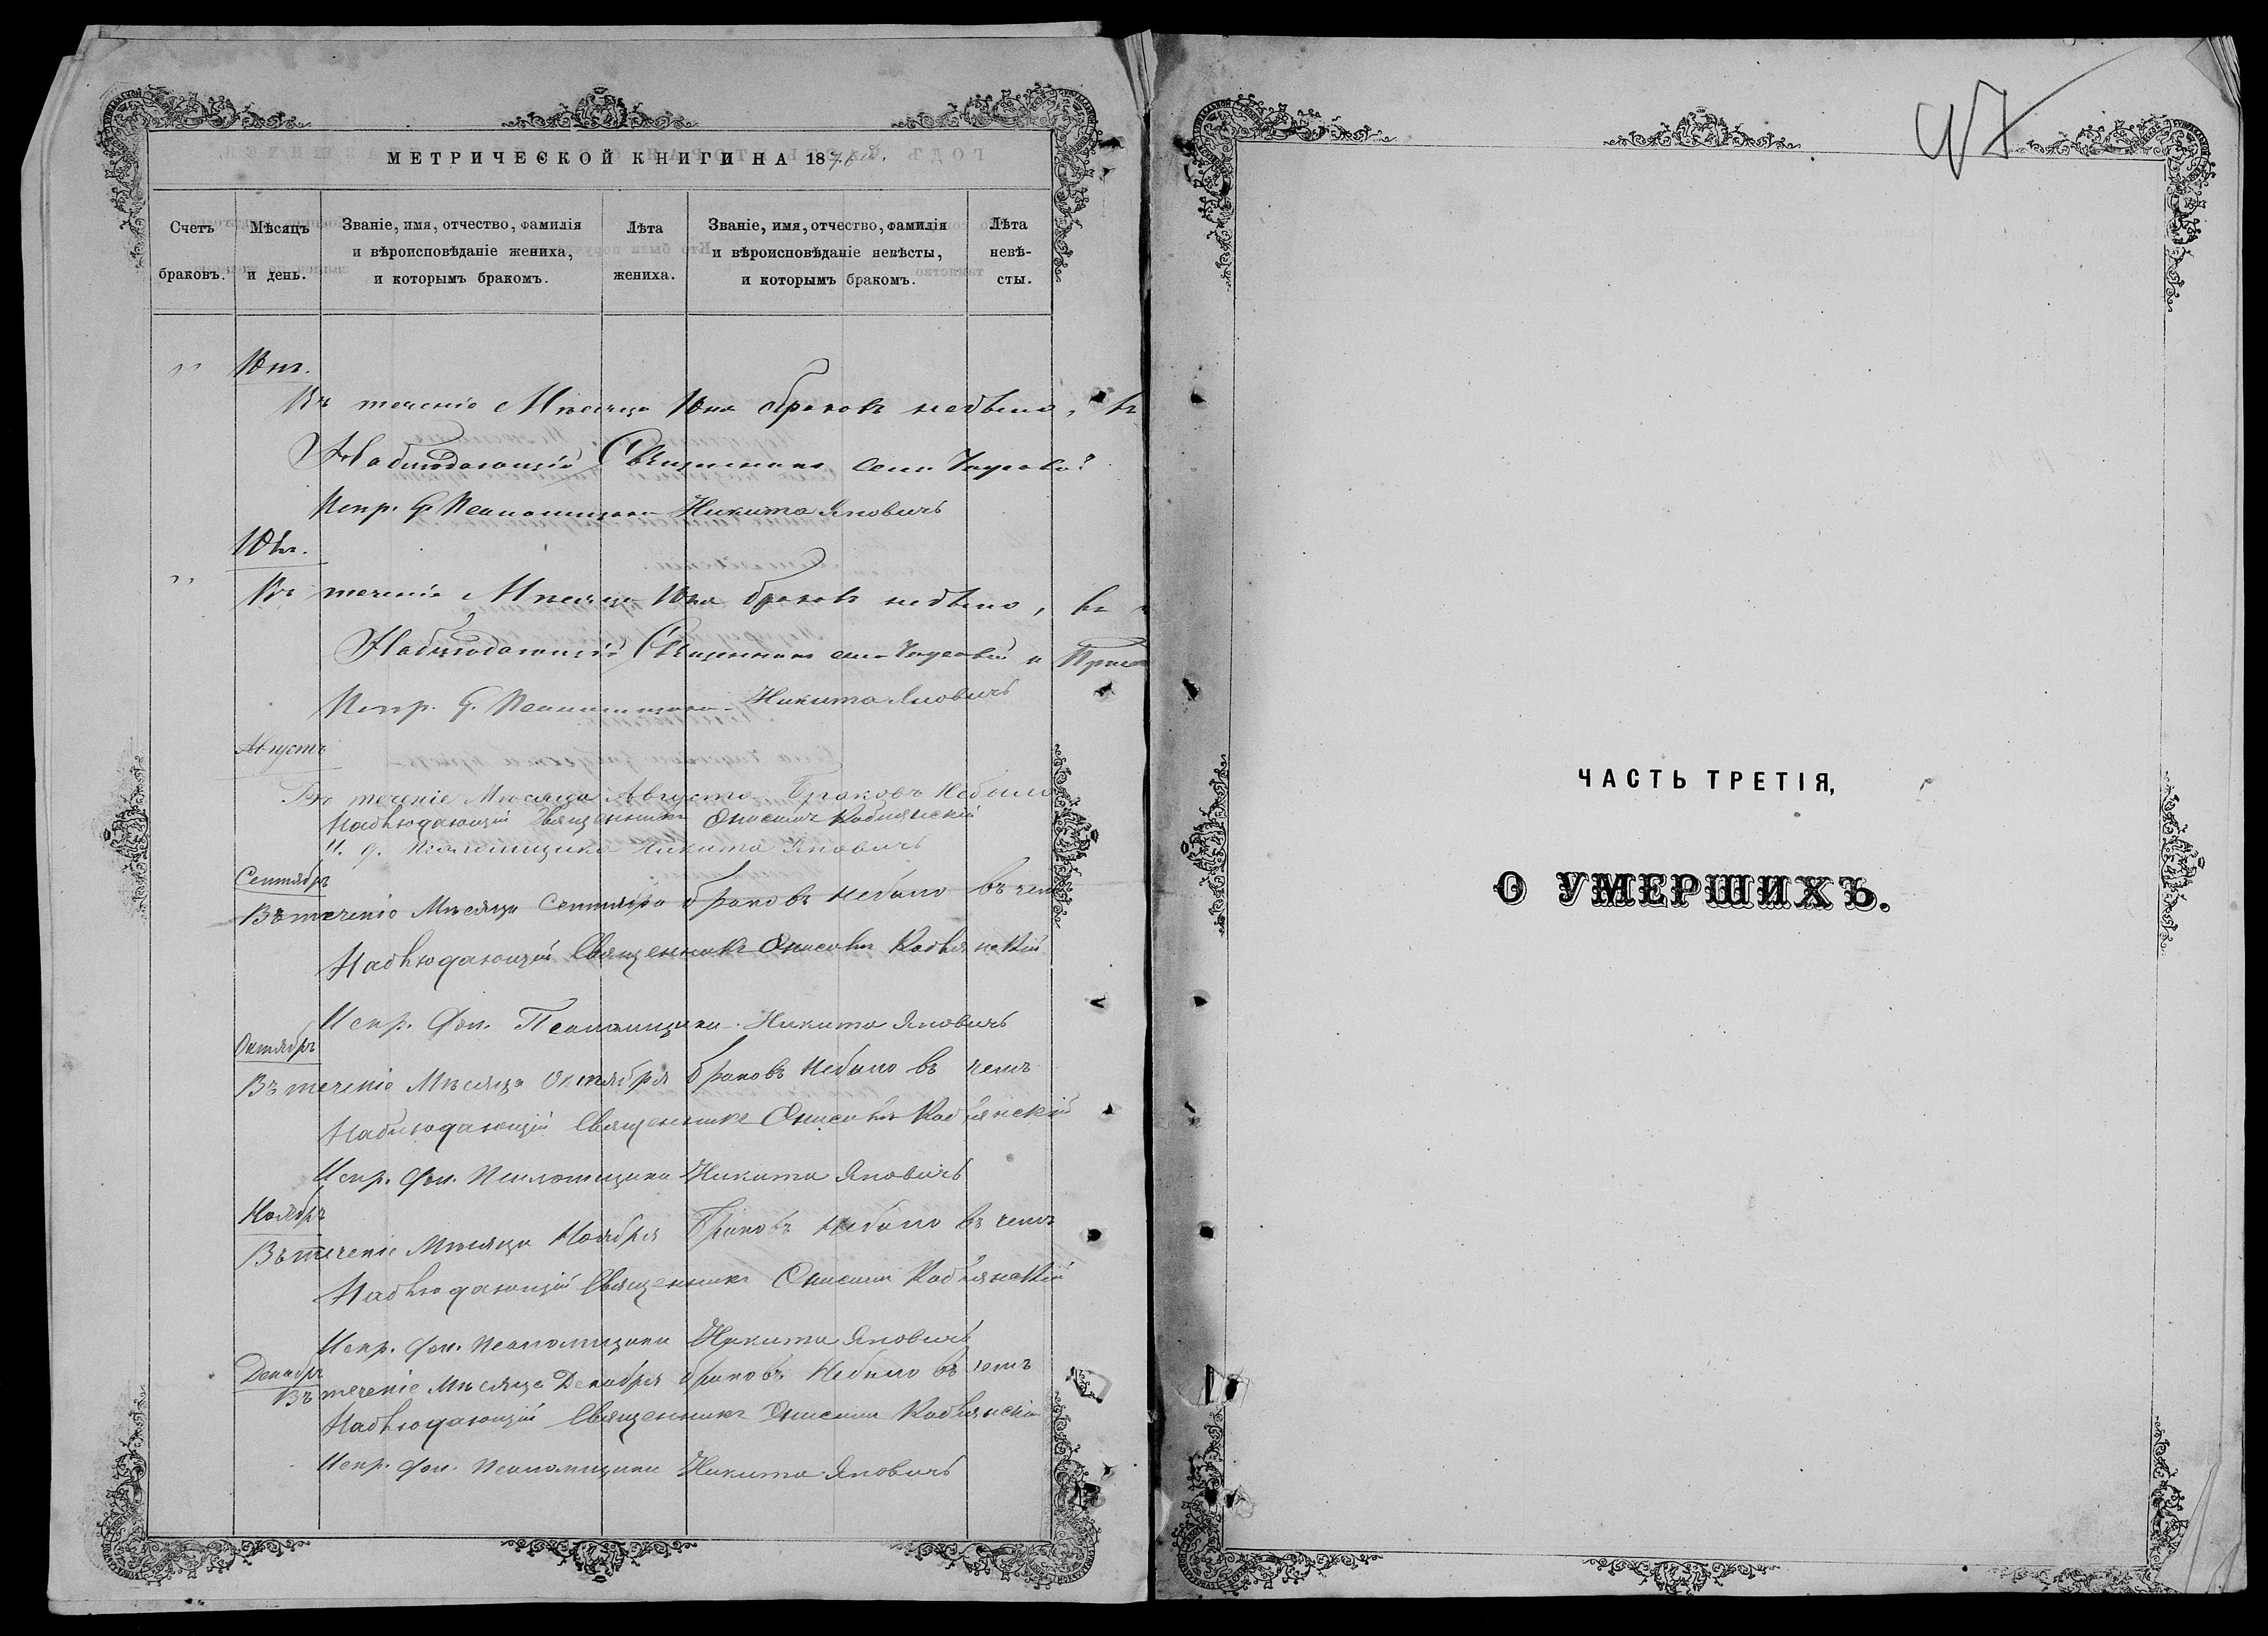 МЕТРИЧЕСКОЙ КНИГИ НА 18
Счетъ браковъ.
Мѣсяцъ и день.
Званіе, имя, отчество, фамилія и вѣроисповѣданіе жениха, и которымъ бракомъ.
Лѣта жениха.
Званіе, имя, отчество, фамилія и вѣроисповѣданіе невѣсты, и которымъ бракомъ.
Лѣта невѣ-сты.
Въ теченіе Мѣсяца Юна браковъ небыло, въ
Наблюдающій Священникъ
Испр. д. Псаломщика Никита Яновичъ
Въ теченіе Мѣсяца браковъ небыло, въ
Наблюдающій Священникъ
Испр. д. Псаломщика Никита Яновичъ
Августъ
Въ теченіе Мѣсяца Августа Браковъ Небыло
Наблюдающій Священникъ
И. д. Псаломщика Никита Яновичъ
Сентябрь
Въ теченіе Мѣсяца Сентября браковъ Небыло въ чемъ
Наблюдающій Священникъ
Испр. дол. Псаломщика Никита Яновичъ
Октябрь
Въ теченіе Мѣсяца Октября браковъ Небыло въ чемъ
Наблюдающій Священникъ
Испр. дол. Псаломщика Никита Яновичъ
Ноябрь
Въ теченіе Мѣсяца Ноября Браковъ Небыло въ чемъ
Наблюдающій Священникъ
Испр. дол. Псаломщика Никита Яновичъ
Декабрь
Въ теченіе Мѣсяца Декабря браковъ Небыло въ чемъ
Наблюдающій Священникъ
Испр. дол. Псаломщика Никита Яновичъ
ЧАСТЬ ТРЕТІЯ,
О УМЕРШИХЪ.